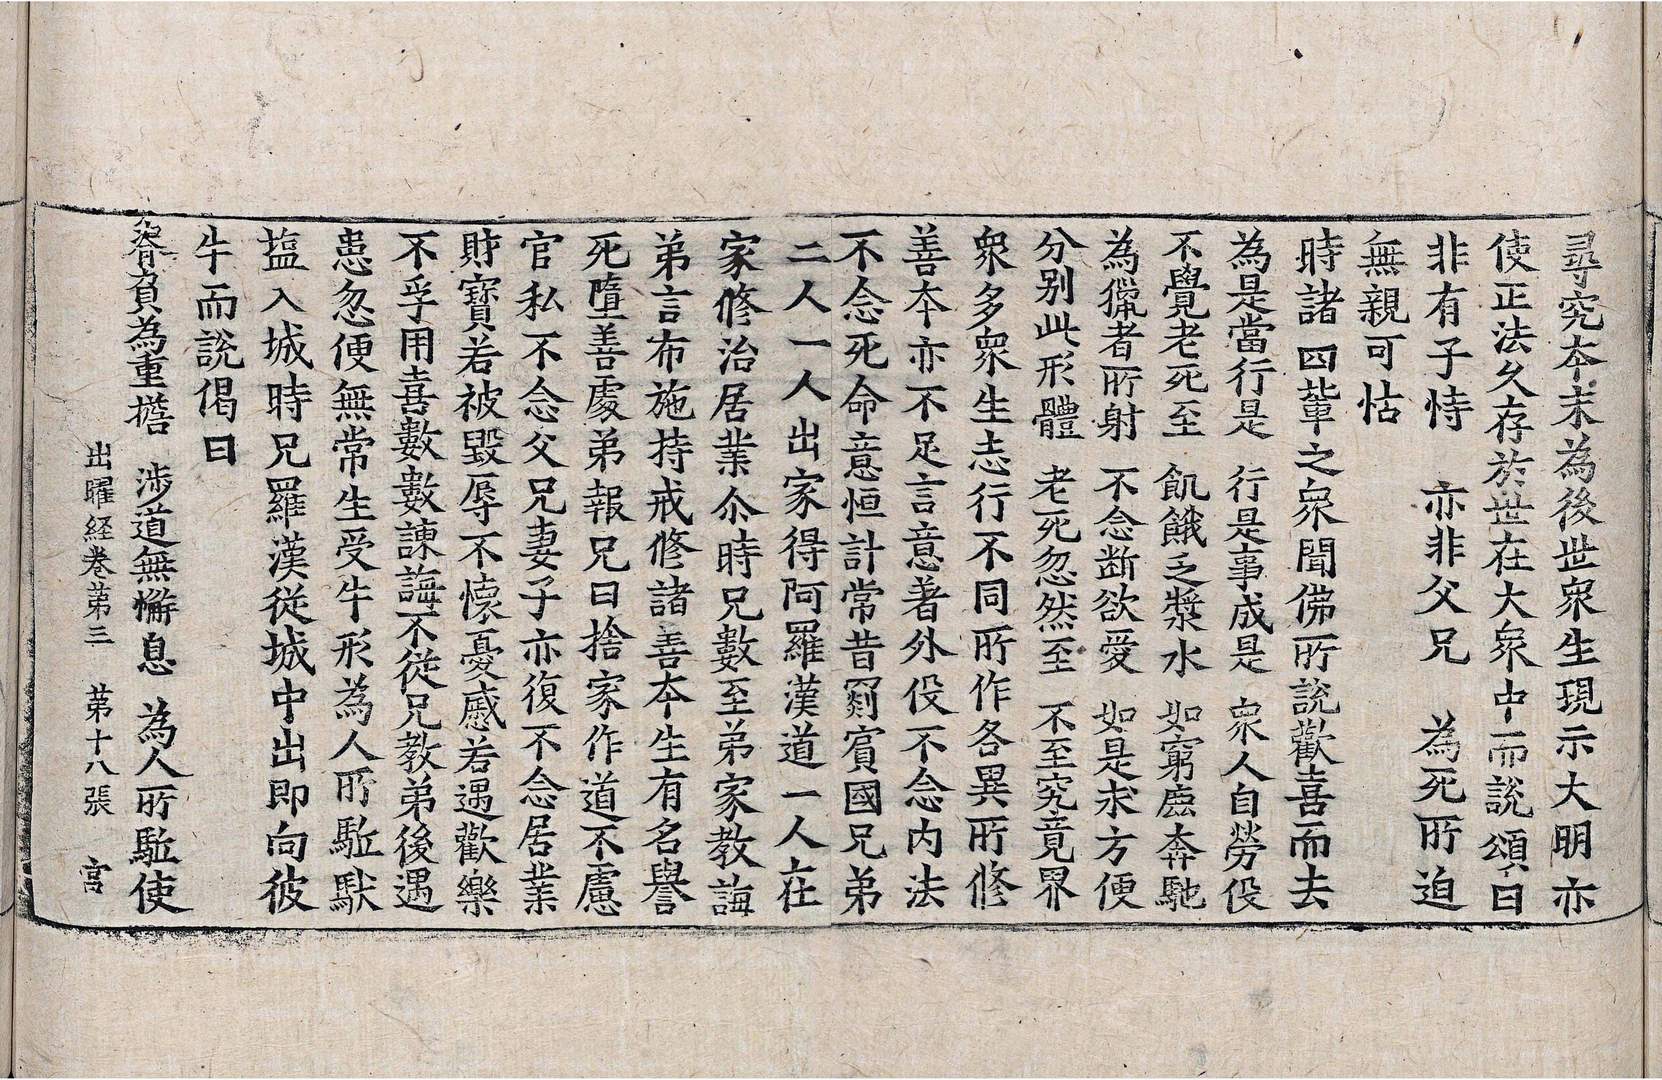 尋究本末為後世眾生現示大明亦
使正法久存於世在大眾中而說頌曰
非有子恃　亦非父兄　為死所迫
無親可怙
時諸四輩之眾聞佛所說歡喜而去
為是當行是　行是事成是　眾人自勞役
不覺老死至　飢餓乏漿水　如窮鹿奔馳
為獵者所射　不念斷欲愛　如是求方便
分別此形體　老死忽然至　不至究竟界
眾多眾生志行不同所作各異所修
善本亦不足言意著外役不念內法
不念死命意恒計常昔罽賓國兄弟
二人一人出家得阿羅漢道一人在
家修治居業尒時兄數至弟家教誨
弟言布施持戒修諸善本生有名譽
死墮善處弟報兄曰捨家作道不慮
官私不念父兄妻子亦復不念居業
財寶若被毀辱不懷憂慼若遇歡樂
不孚用喜數數諫誨不從兄教弟後遇
患忽便無常生受牛形為人所駈馱
塩入城時兄羅漢從城中出即向彼
牛而說偈曰
脊負為重擔　涉道無懈息　為人所駈使
出曜経卷第三　第十八張　宮